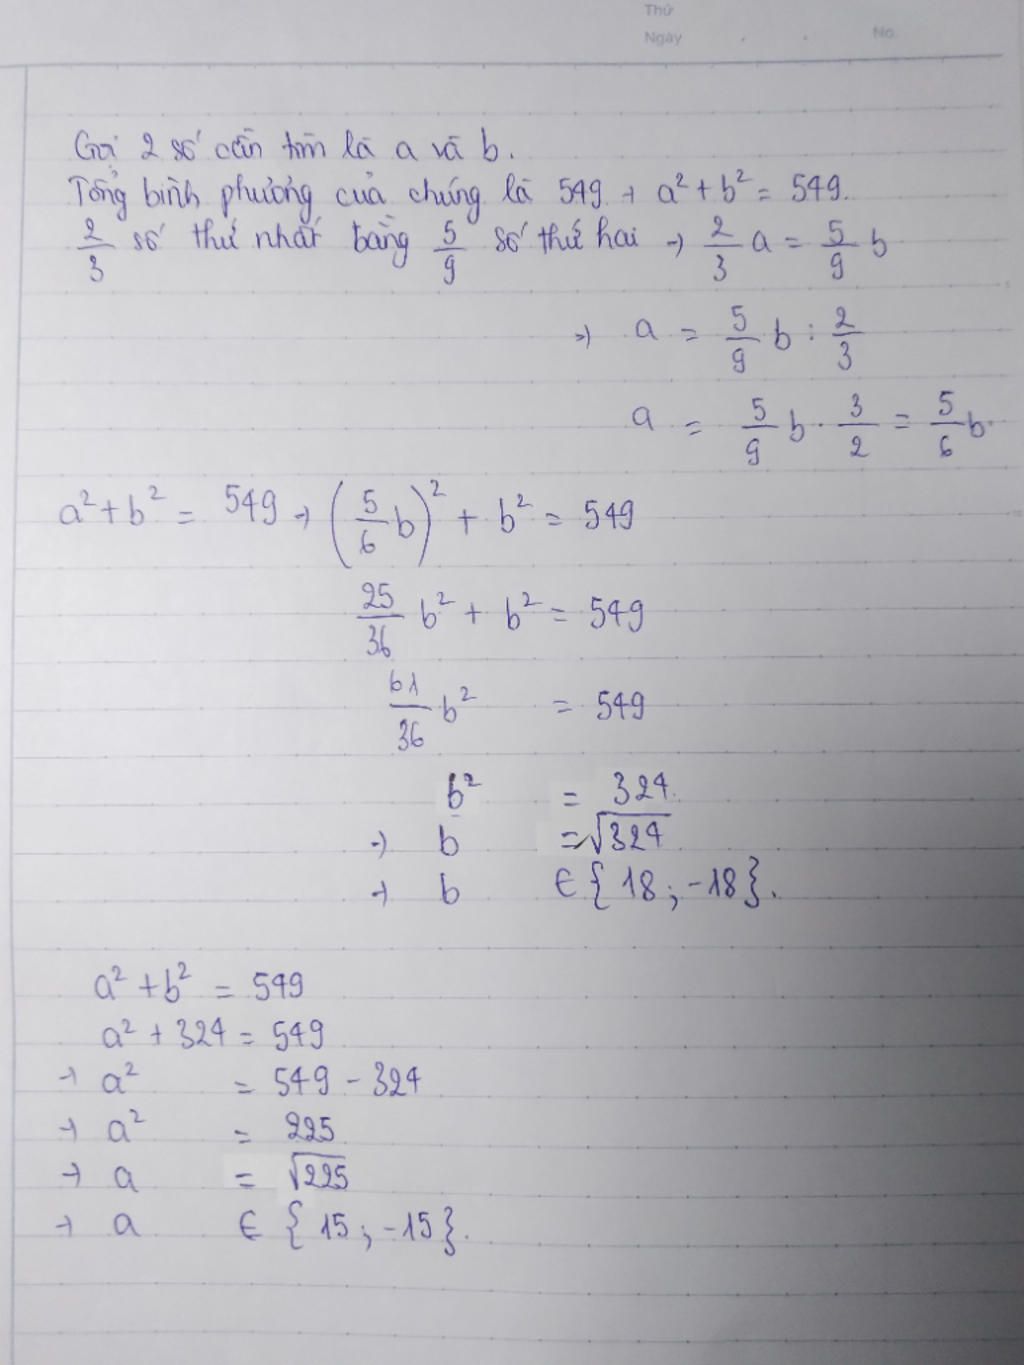 Thứ
Ngày . . No.
Gọi 2 số cần tìm là a và b.
Tổng bình phương của chúng là 549 → a² + b² = 549.
2/3 số thứ nhất bằng 5/9 số thứ hai → 2/3 a = 5/9 b
→ a = 5/9 b : 2/3
a = 5/9 b · 3/2 = 5/6 b.
a² + b² = 549 → (5/6 b)² + b² = 549
25/36 b² + b² = 549
61/36 b² = 549
b² = 324.
→ b = √324
→ b ∈ {18; -18}.
a² + b² = 549
a² + 324 = 549
→ a² = 549 - 324
→ a² = 225
→ a = √225
→ a ∈ {15; -15}.